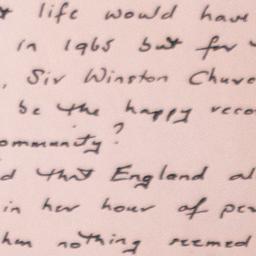 life would have
in 1965 but for
, Sir Winston Churc
be the happy reco
ommunity?
d that England al
in her hour of per
hen nothing seemed